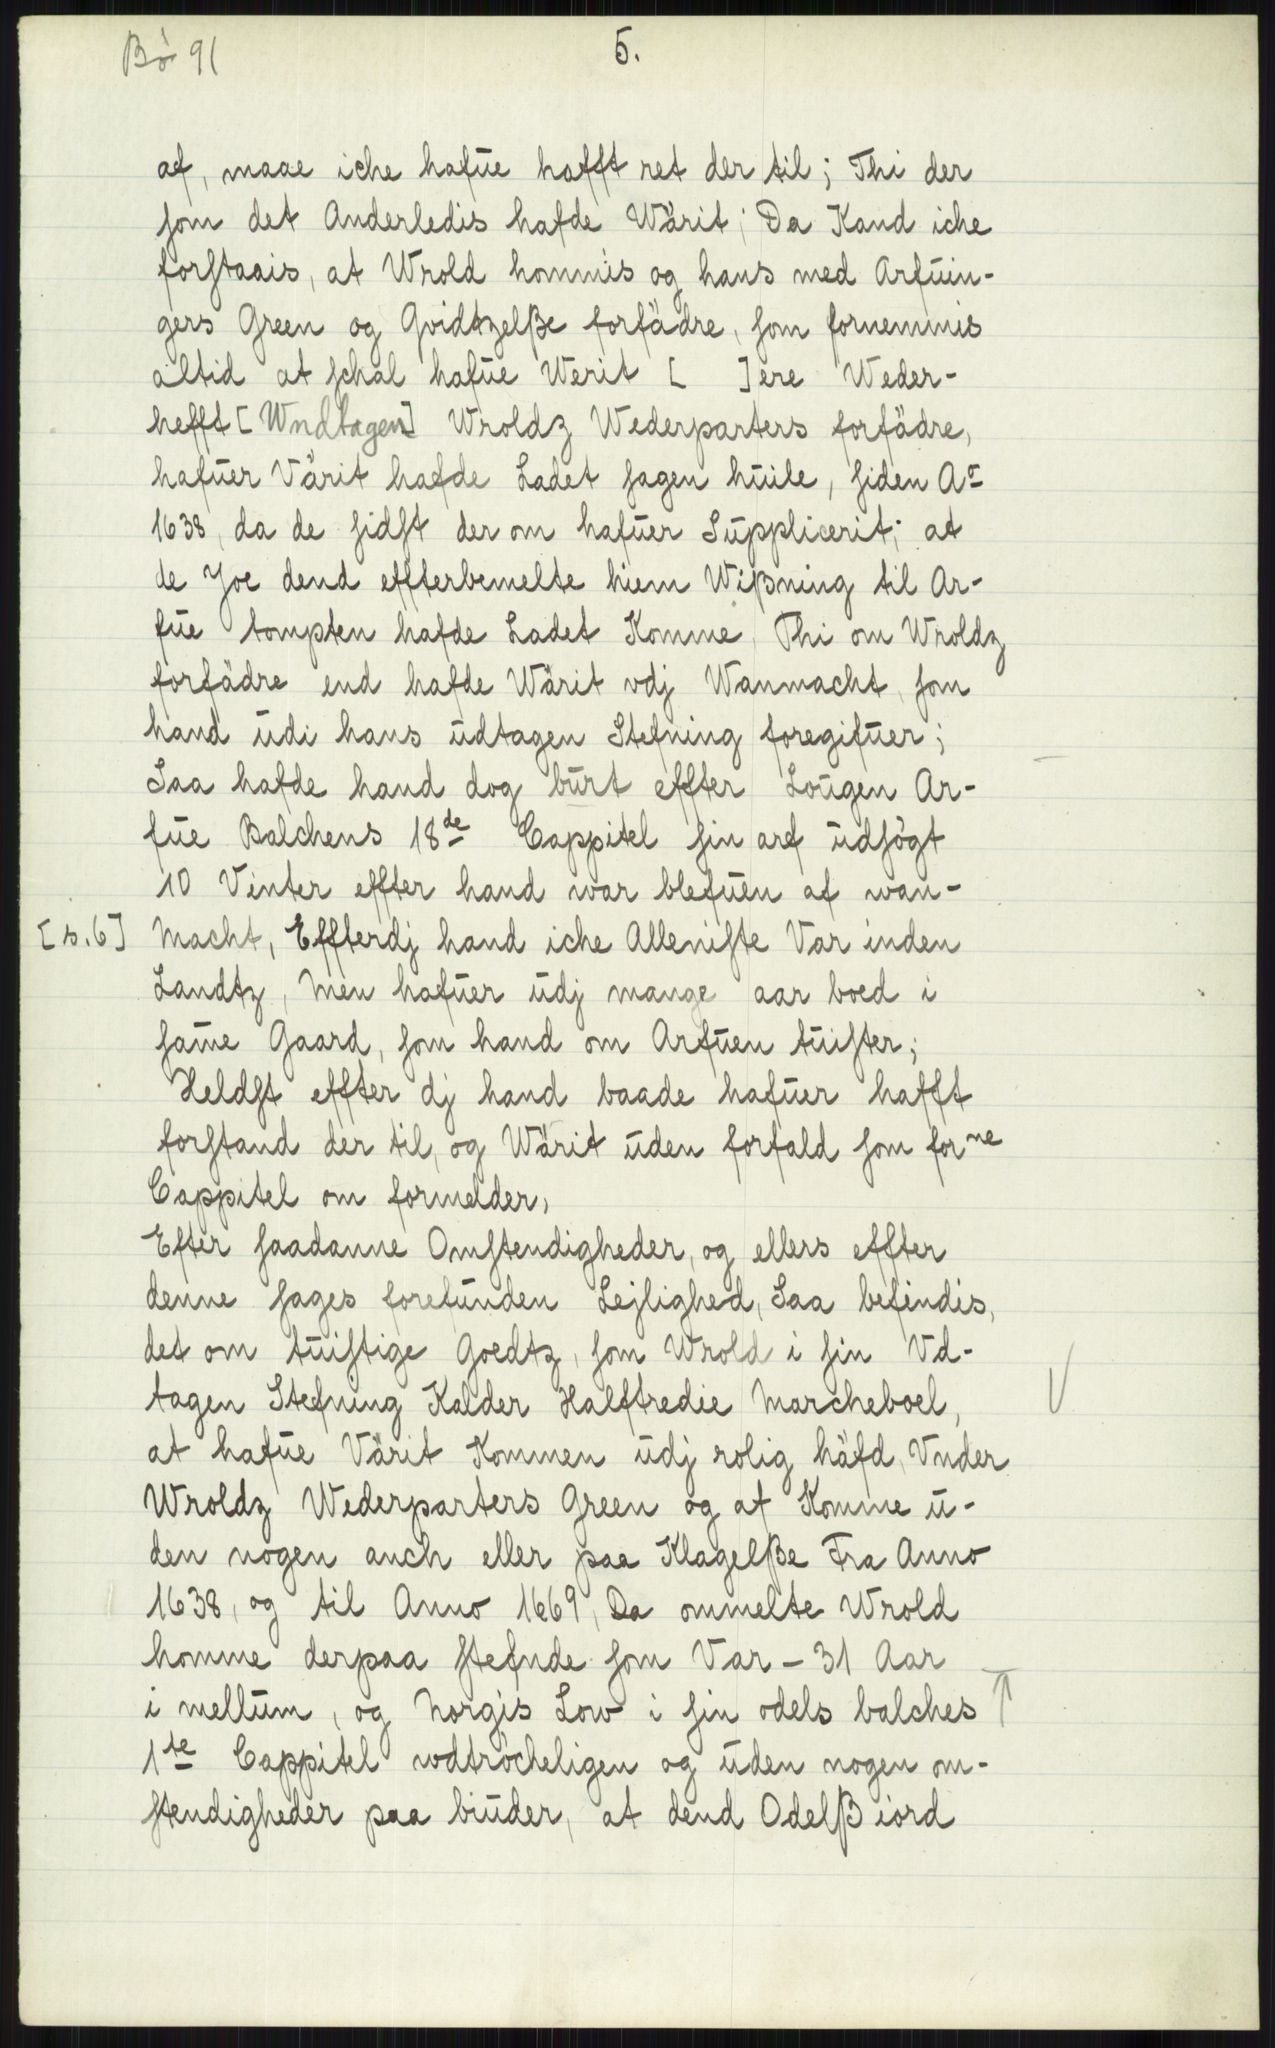 Bö 91
5.
af, maae iche hafue hafft ret der til; Thi der
som det Anderledis hafde Wärit; Da Kand iche
forstaais, at Wrold hommis og hans med Arfuin-
gers Green og Qvidtzelße forfädre, som fornemmis
altid at schal hafue Werit [ ]ere Weder-
hefft [Wndtagen] Wroldz Wederparters forfädre,
hafuer Värit hafde Ladet sagen huile, siden Ao
1638, da de sidst der om hafuer Supplicerit; at
de Joe dend effterbemelte hiem Wißning til Ar-
fue tompten hafde Ladet Komme, Thi om Wroldz
forfädre end hafde Wärit vdj Wanmacht, som
hand udi hans udtagen Stefning foregifuer;
Saa hafde hand dog burt effter Lougen Ar-
fue Balchens 18de Cappitel sin arf udsögt
10 Vinter effter hand war blefuen af wan-
[s. 6] Macht, Effterdj hand iche Alleniste Var inden
Landtz, Men hafuer udj mange aar boed i
same Gaard, som hand om Arfuen tuister;
Heldst effter dj hand baade hafuer hafft
forstand der til, og Wärit uden forfald som forne
Cappitel om formelder,
Efter saadanne Omstendigheder, og ellers effter
denne sages forefunden Lejlighed, Saa befindis,
det om tuistige Goedtz, som Wrold i sin Vd-
tagen Stefning Kalder Halftredie Marcheboel,
at hafue Värit Kommen udj rolig häfd, Vnder
Wroldz Wederparters Green og af Komme u-
den nogen anch eller paa Klagelße Fra Anno
1638, og til Anno 1669, Da ommelte Wrold
homme derpaa stefnde som Var - 31 Aar
i mellum, og Norgis Low i sin odels balches
1te Cappitel wdtröcheligen og uden nogen om-
stendigheder paa biuder, at dend Odelß iord